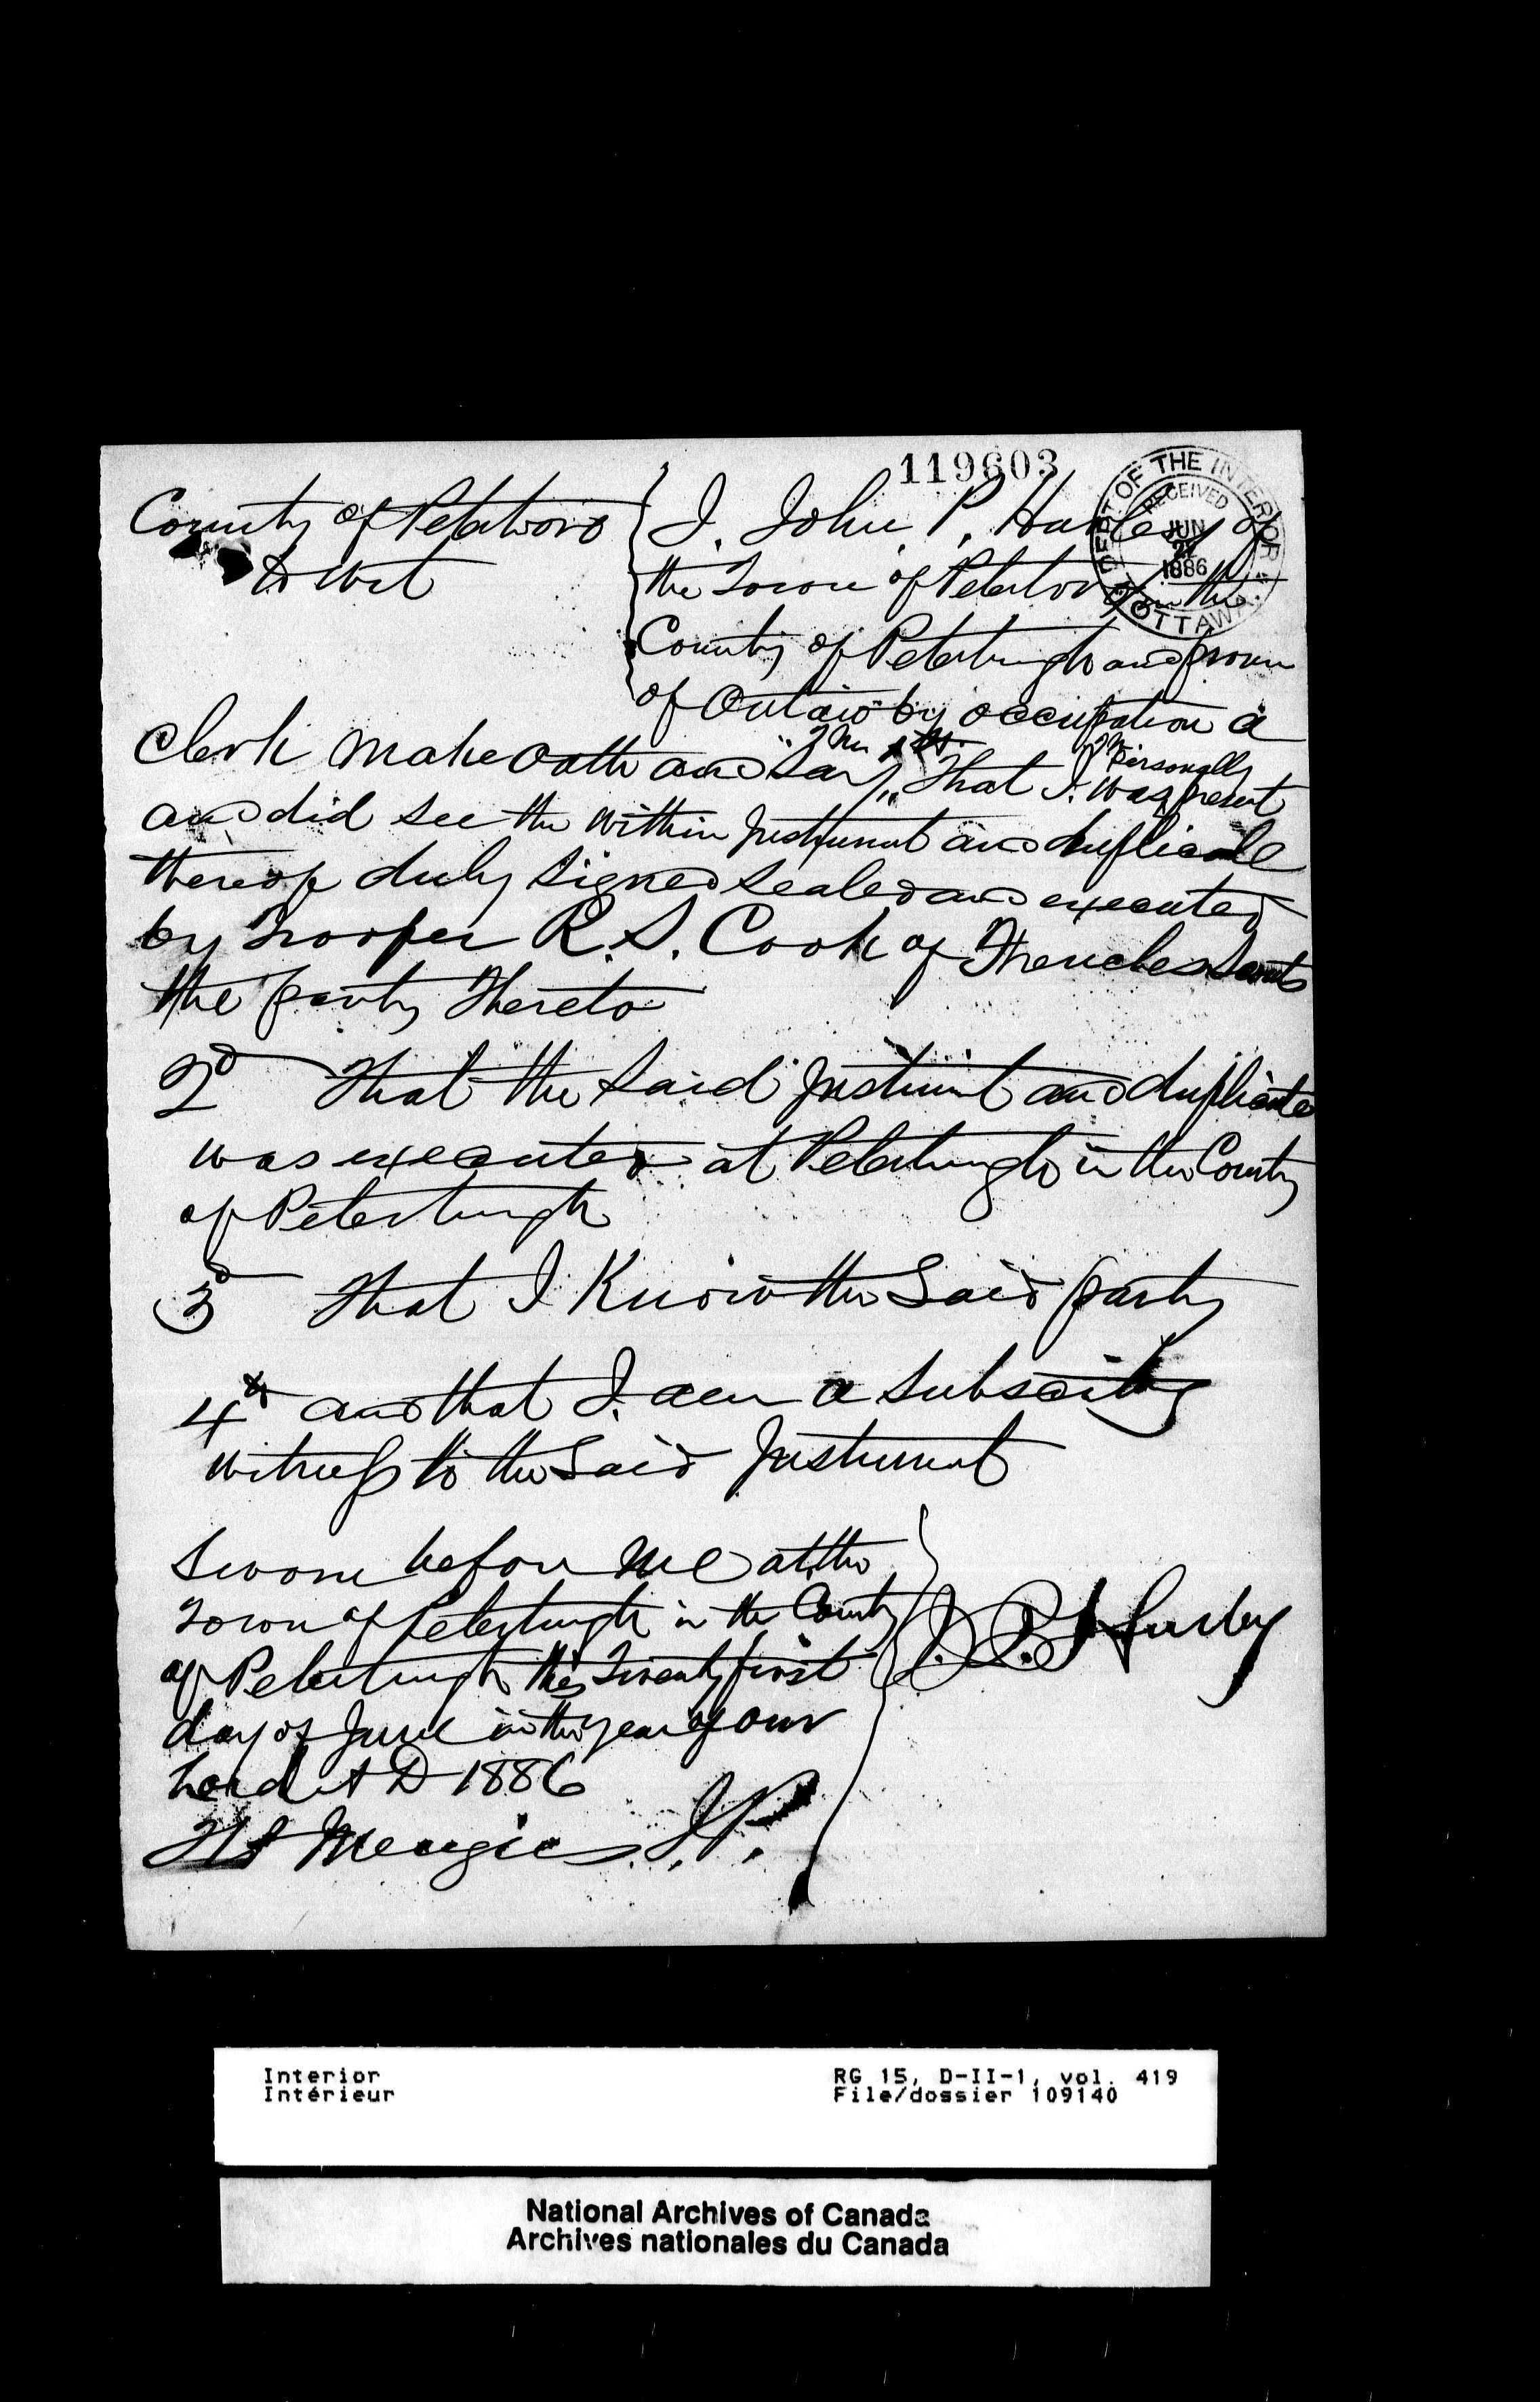 119603
DEPT OF THE INTERIOR
RECEIVED
JUN
1886
OTTAWA
County of Peterboro
To Wit
I. John. P. Hurley of
the Town of Peterboro in the
County of Peterburgh and provn
of Ontario by occupation a
Clerk make oath and say That I. was personally present
and did see the within Instrument and duplicate
thereof duly signed sealed and executed
by Trooper R. S. Cook of Frenches Scouts
the party thereto
2d That the said Instrument and duplicate
was executed at Peterburgh in the County
of Peterburgh
3d That I Know the Said party
4th and that I. am a Subscribing
witness to the Said Instrument
Sworn before me at the
Town of Peterburgh in the County
of Peterburgh this Twenty first
day of June in the year of our
Lord A D 1886
J. P. Hurley
Menzies J.P.
Interior
Intérieur
RG 15, D-II-1, vol. 419
File/dossier 109140
National Archives of Canada
Archives nationales du Canada